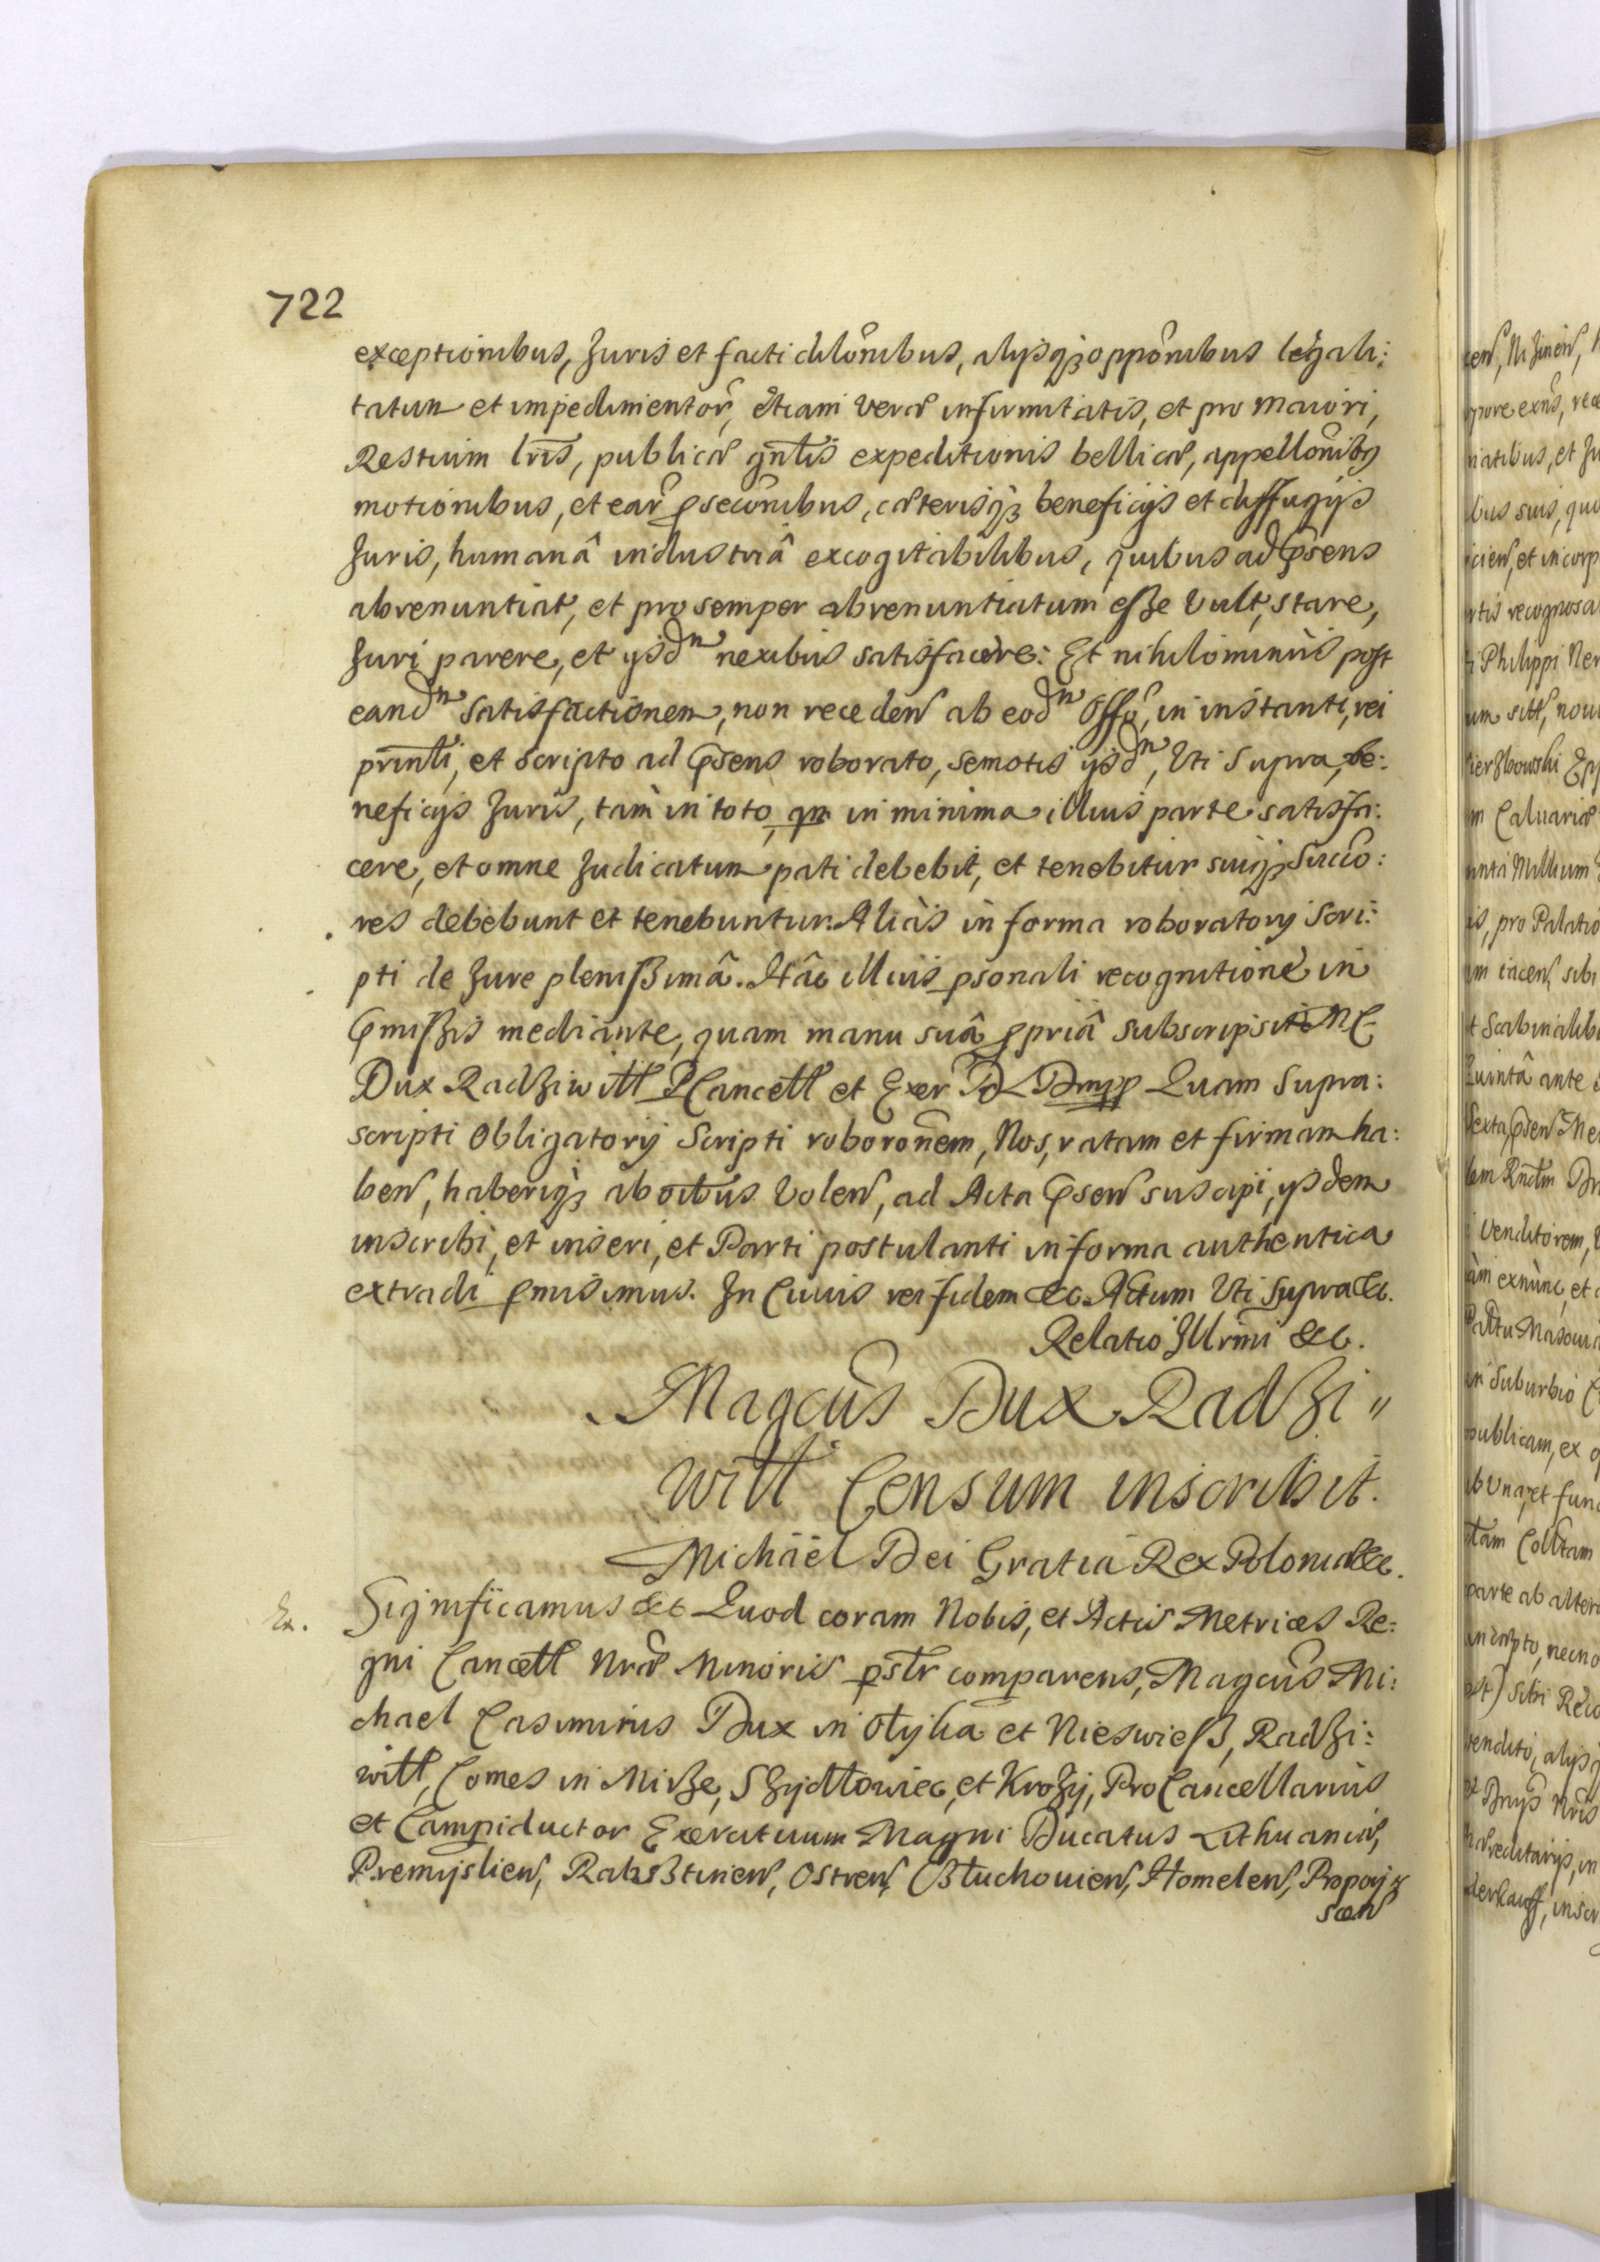 722
exceptionibus, Juris et facti dilõnibus, alysq₃ oppõnibus legali:
tatum et impedimentor, etiam veræ infirmitatis, et pro maiori,
Restium lris, publicæ gnlis expeditionis bellicæ, appellõnibq
motionibus, et ear psecõnibus, cæterisq₃ beneficijs et diffugijs
Juris, humanâ industriâ excogitabilibus, quibus ad psens
abrenuntiat, et pro semper abrenuntiatum eße vult, stare,
Juri parere, et ysdᵐ nexibus satisfacere: Et nihilominùs post
eandᵐ satisfactionem, non receden ab eodᵐ Offo, in instanti, rei
prinlti, et scripto ad psens roborato, semotis ysdᵐ, Uti supra, be:
neficijs Juris, tàm in toto, qm in minima illius parte satisfa:
cere, et omne Judicatum pati debebit, et tenebitur suiq₃ Succo:
res debebunt et tenebuntur. Aliàs in forma roboratorij scri:
pti de Jure plenißimâ. Hâc illius psonali recognitione in
pmißis mediante, quam manu suâ ppriâ subscripsit M C
Dux Radziwiłł PCancell et Exer D L Dmpp Quam supra:
scripti Obligatorij Scripti roboronem, Nos, ratam et firmam ha:
ben, haberiq₃ ab oibus volen, ad Acta psen suscipi, ysdem
inscribi, et inseri, et Parti postulanti in forma authentica
extradi pmisimus. In Cuius rei fidem &c. Actum Uti supra &c.
Relatio Illrmi &c.
Magcus Dux Radzi〃
wiłł Censum inscribit.
Michaël Dei Gratia Rex Poloniæ &c.
Ex. Significamus &c Quod coram Nobis, et Actis Metrices Re:
gni Cancell Nræ Minoris pstr comparens, Magcus Mi:
chael Casimirus Dux in Olyka et Nieswieß, Radzi:
wiłł, Comes in Mirze, Szydłowiec, et Krozy, ProCancellarius
et Campiductor Exercituum Magni Ducatus Lithuaniæ,
Premyslien, Rabsztinen, Ostren, Człuchouien, Homelen, Propoy
scen